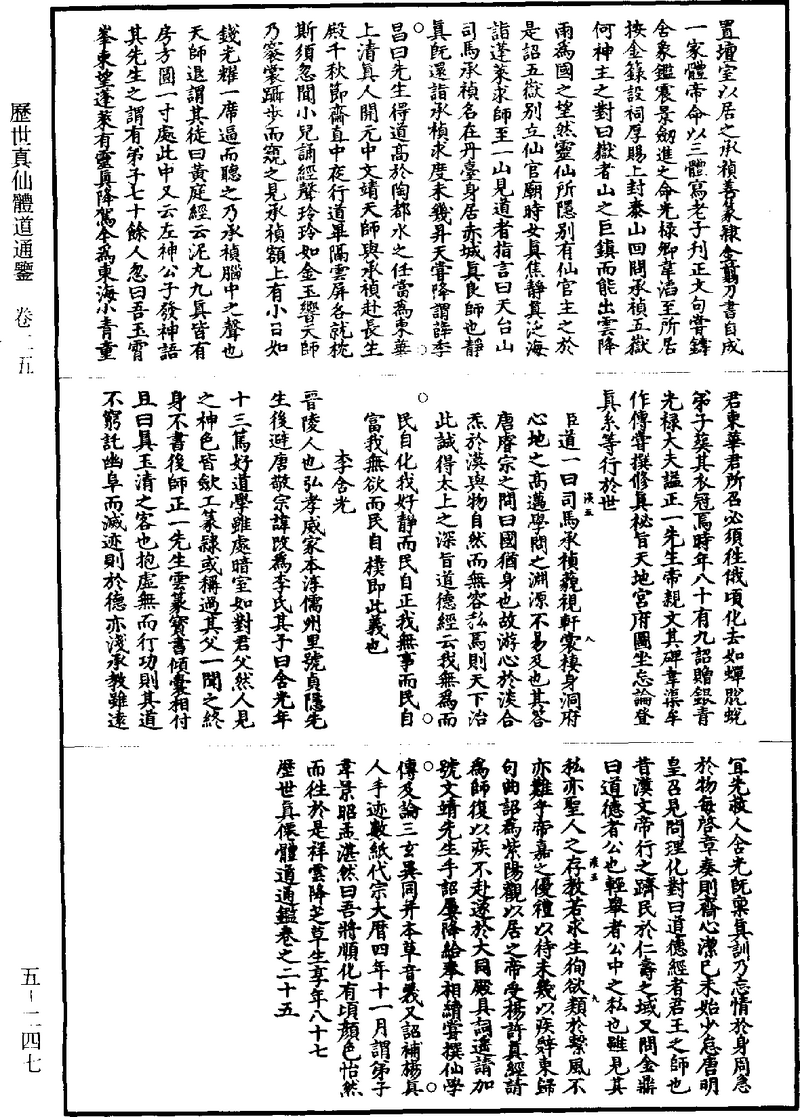 歷世真仙體道通鑒　卷二五
五-二四七
置壇室以居之承禎善篆隸金翦刀書自成
一家體帝命以三體寫老子刊正文句嘗鑄
含象鑑震景劒進之命光祿卿韋縚至所居
按金籙設祠厚賜上封泰山回問承禎五嶽
何神主之對曰嶽者山之巨鎮而能出雲降
雨為國之望然靈仙所隱別有仙官主之於
是詔五嶽別立仙官廟時女真焦靜真泛海
詣蓬萊求師至一山見道者指言曰天台山
司馬承禎名在丹臺身居赤城真良師也靜
真旣還詣承禎求度未幾昇天嘗降謂薛季
昌曰先生得道高於陶都水之任當為東華
上清真人開元中文靖天師與承禎赴長生
殿千秋節齋直中夜行道畢隔雲屏各就枕
斯須忽聞小兒誦經聲玲玲如金玉響天師
乃褰裳躡步而窺之見承禎額上有小日如
錢光耀一席逼而聽之乃承禎腦中之聲也
天師退謂其徒曰黃庭經云泥丸九真皆有
房方圓一寸處此中又云左神公子發神語
其先生之謂有弟子七十餘人忽曰吾玉霄
峯東望蓬萊有靈真降駕今為東海小青童
君東華君所召必須往俄頃化去如蟬脫蛻
弟子葬其衣冠焉時年八十有九詔贈銀青
光祿大夫謚正一先生帝親文其碑韋渠牟
作傳嘗撰修真秘旨天地宮府圖坐忘論登
真系等行於世
臣道一曰司馬承禎藐視軒裳棲身洞府
心地之高邁學問之淵源不易及也其答
唐睿宗之問曰國猶身也故游心於淡合
炁於漠與物自然而無容私焉則天下治
此誠得太上之深旨道德經云我無為而
民自化我好靜而民自正我無事而民自
富我無欲而民自樸即此義也
李含光
晉陵人也弘孝威家本淳儒州里號貞隱先
生後避唐敬宗諱改為李氏其子曰含光年
十三篤好道學雖處暗室如對君父然人見
之神色皆歛工篆隸或稱過其父一聞之終
身不書後師正一先生雲篆寶書傾囊相付
且曰真玉清之客也抱虛無而行功則其道
不窮託幽阜而滅迹則於德亦淺承教雖遠
宜先救人含光旣稟真訓乃忘情於身周急
於物每啓章奏則齋心潔已未始少怠唐明
皇召見問理化對曰道德經者君王之師也
昔漢文帝行之躋民於仁壽之域又問金鼎
曰道德者公也輕舉者公中之私也雖見其
私亦聖人之存教若求生徇欲類於繫風不
亦難乎帝嘉之優禮以待未幾以疾辭東歸
句曲詔為紫陽觀以居之帝受楊許真經請
為師復以疾不赴遂於大同殿具詞遥請加
號文靖先生手詔屢降給奉相續嘗撰仙學
傳及論三玄異同并本草音義又詔補楊真
人手迹數紙代宗大曆四年十一月謂弟子
韋景昭孟湛然曰吾將順化有頃顏色怡然
而往於是祥雲降芝草生享年八十七
歷世真僊體道通鑑卷之二十五